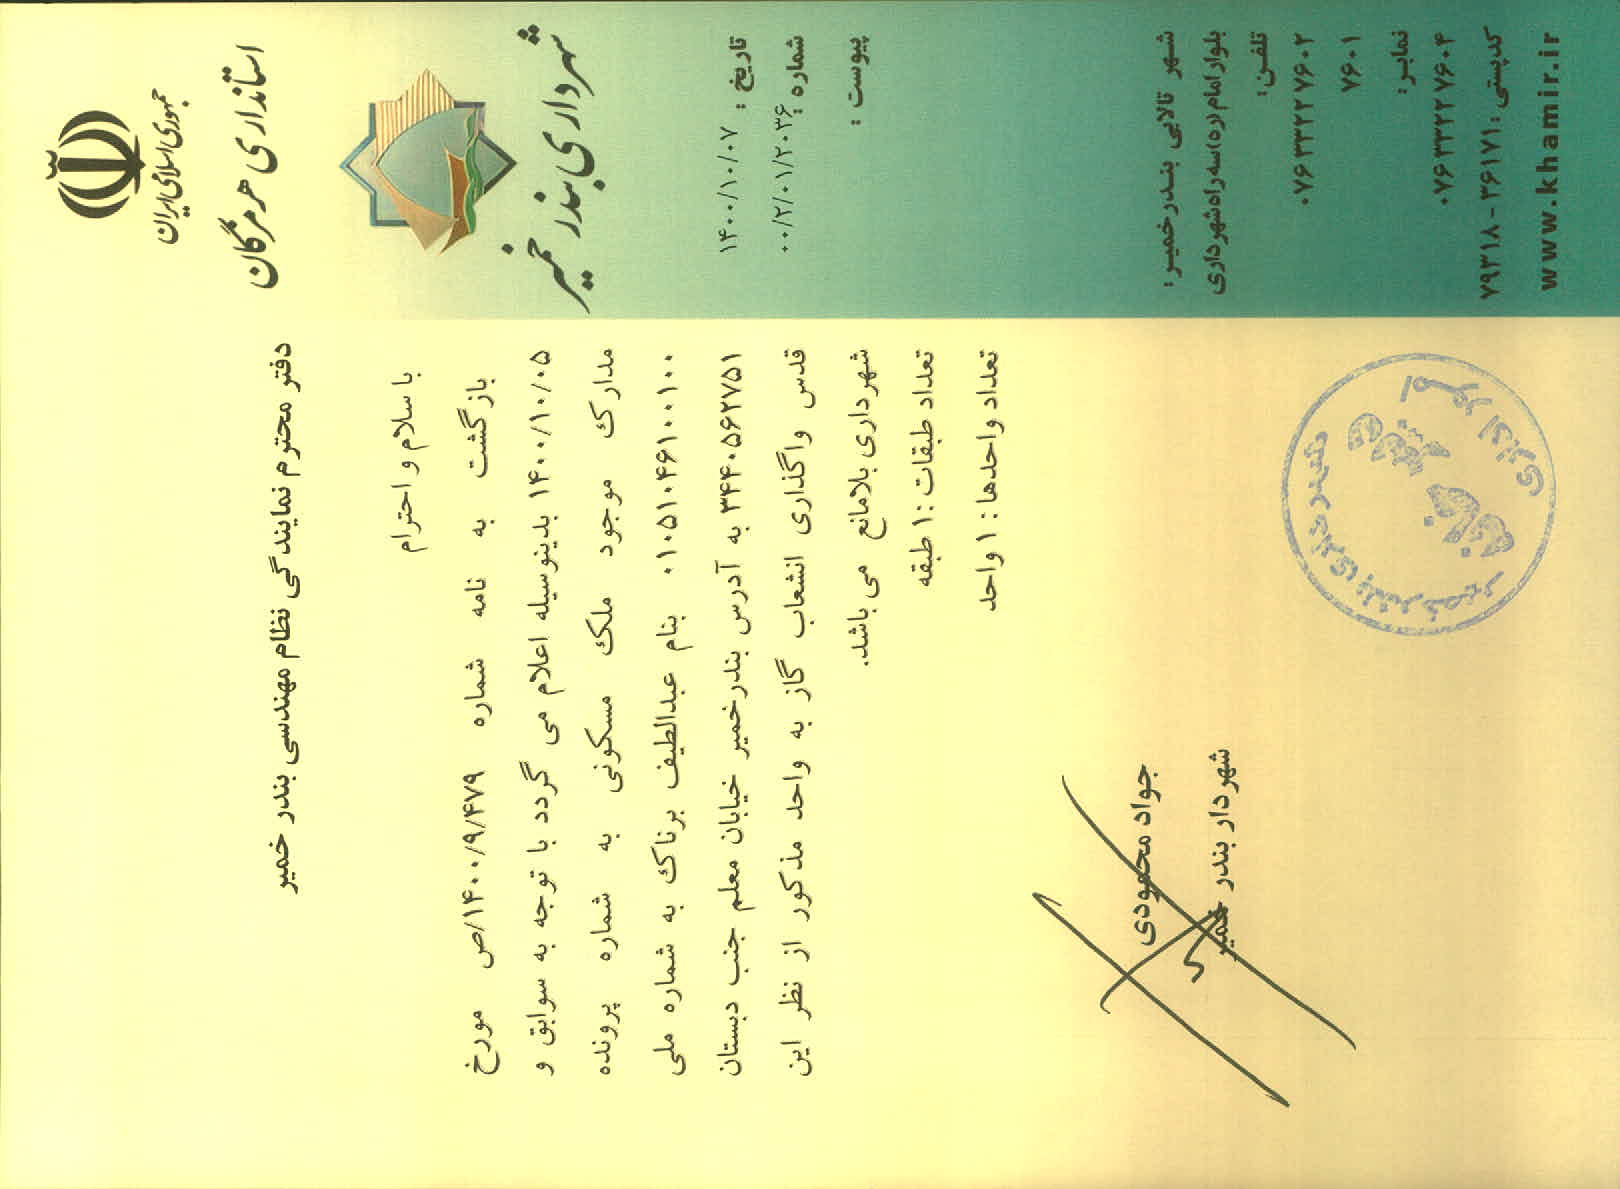 جمهوری اسلامی ایران
استانداری هرمزگان
شهرداری بندر خمیر
تاریخ : ۱۴۰۰/۱۰/۰۷
شماره : ۰۰/۲/۰۱/۲۰۳۶
پیوست :
دفتر محترم نمایندگی نظام مهندسی بندر خمیر
با سلام و احترام
بازگشت به نامه شماره ۱۴۰۰/۹/۴۷۹/ص مورخ
۱۴۰۰/۱۰/۰۵ بدینوسیله اعلام می گردد با توجه به سوابق و
مدارک موجود ملک مسکونی به شماره پرونده
۰۱۰۵۱۰۴۶۱۰۰۱۰۰ بنام عبدالطیف برناک به شماره ملی
۳۴۴۰۵۶۲۷۵۱ به آدرس بندرخمیر خیابان معلم جنب دبستان
قدس واگذاری انشعاب گاز به واحد مذکور از نظر این
شهرداری بلامانع می باشد.
تعداد طبقات :۱ طبقه
تعداد واحدها : ۱ واحد
جواد محمودی
شهردار بندر خمیر
شهرداری بندر خمیر
امور اداری
شهر تالابی بندرخمیر:
بلوار امام (ره) سه راه شهرداری
تلفن:
۰۷۶۳۳۲۲۷۶۰۲
۷۶۰۱
نمابر:
۰۷۶۳۳۲۲۷۶۰۴
کدپستی: ۳۶۱۷۱ - ۷۹۳۱۸
www.khamir.ir